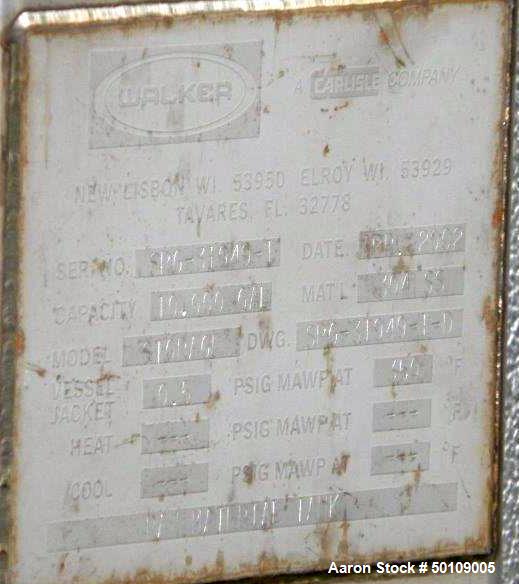 WALKER A CARLISLE COMPANY
NEW LISBON WI. 53950 ELROY WI. 53929
TAVARES, FL. 32778
SER. NO. SPG-31949-1 DATE 2002
CAPACITY 10,000 GAL MAT'L 304 SS
MODEL DWG. SPG-31949-1-D
VESSEL 0.5 PSIG MAWP AT °F
JACKET
HEAT --- PSIG MAWP AT --- °F
COOL --- PSIG MAWP AT --- °F
Aaron Stock # 50109005